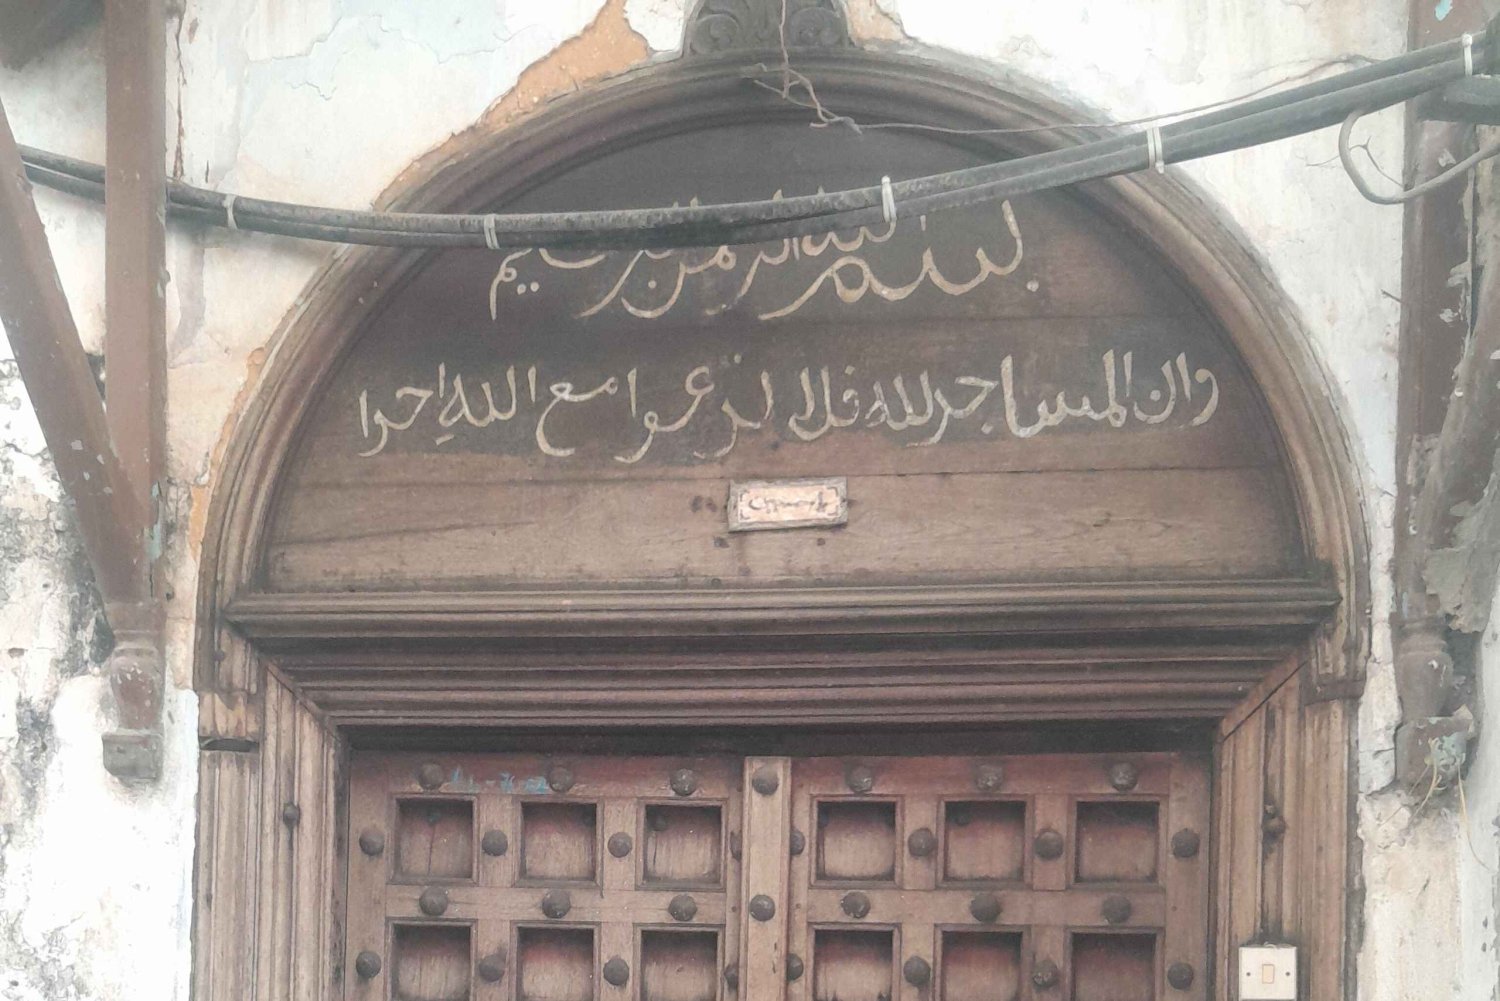 بسم الله الرحمن الرحيم
وان المساجد لله فلا تدعوا مع الله احدا